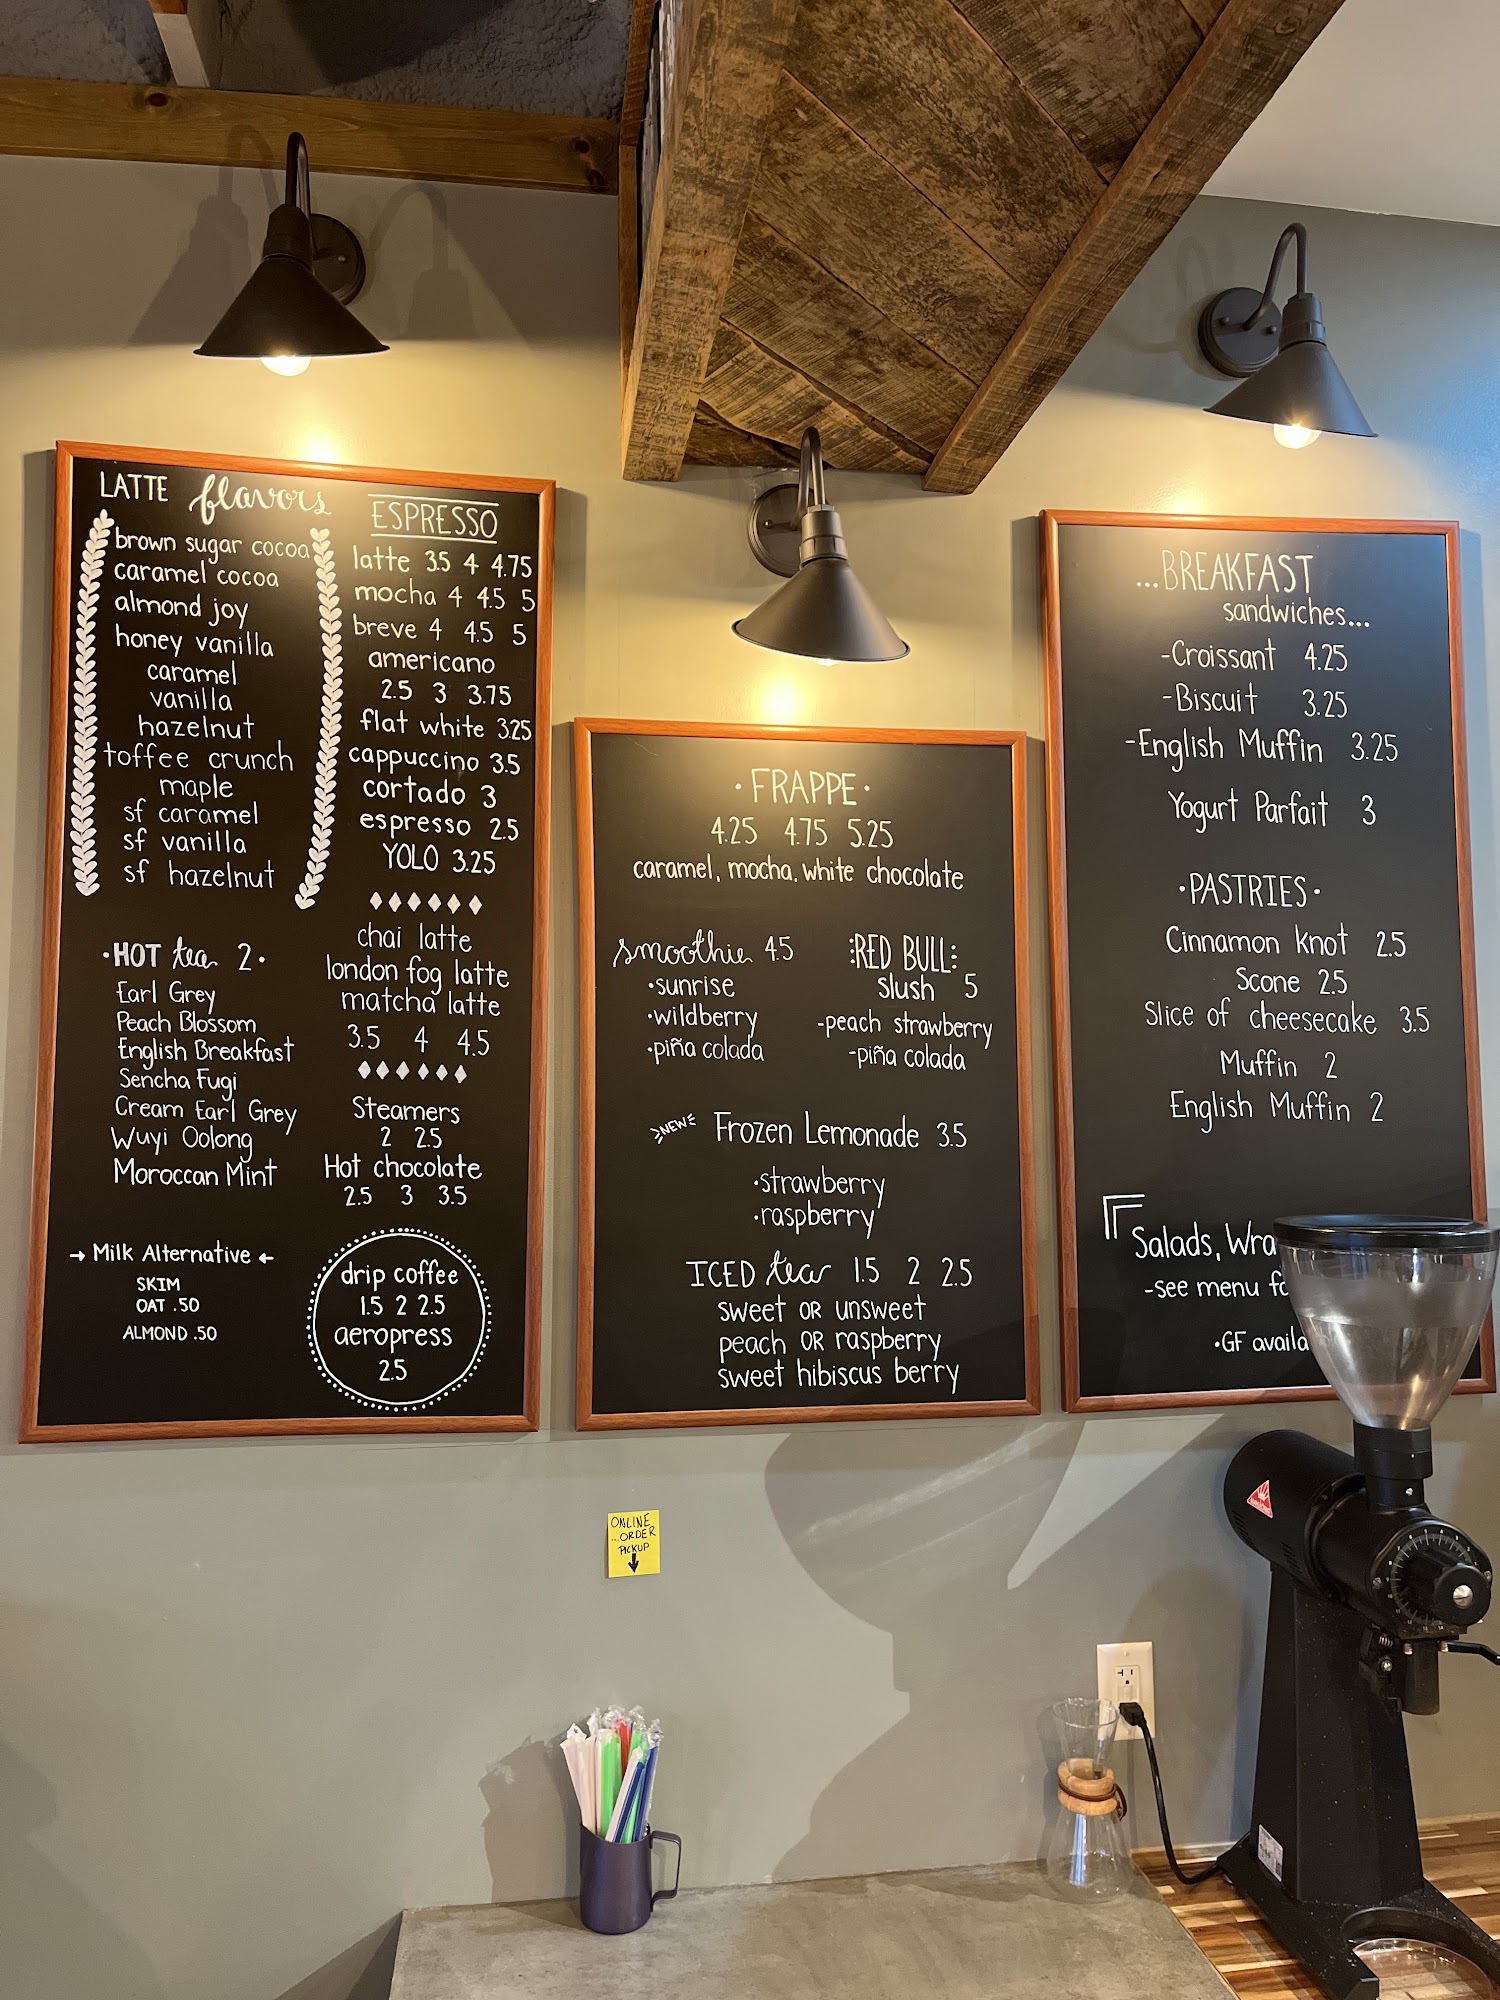 LATTE flavors
brown sugar cocoa
caramel cocoa
almond joy
honey vanilla
caramel
vanilla
hazelnut
toffee crunch
maple
sf caramel
sf vanilla
sf hazelnut
·HOT tea 2·
Earl Grey
Peach Blossom
English Breakfast
Sencha Fugi
Cream Earl Grey
Wuyi Oolong
Moroccan Mint
→ Milk Alternative ←
SKIM
OAT .50
ALMOND .50
ESPRESSO
latte 3.5 4 4.75
mocha 4 4.5 5
breve 4 4.5 5
americano
2.5 3 3.75
flat white 3.25
cappuccino 3.5
cortado 3
espresso 2.5
YOLO 3.25
chai latte
london fog latte
matcha latte
3.5 4 4.5
Steamers
2 2.5
Hot chocolate
2.5 3 3.5
drip coffee
1.5 2 2.5
aeropress
2.5
·FRAPPE·
4.25 4.75 5.25
caramel, mocha, white chocolate
smoothie 4.5
·sunrise
·wildberry
·piña colada
:RED BULL:
slush 5
-peach strawberry
-piña colada
NEW Frozen Lemonade 3.5
·strawberry
·raspberry
ICED tea 1.5 2 2.5
sweet OR unsweet
peach OR raspberry
sweet hibiscus berry
...BREAKFAST
sandwiches...
-Croissant 4.25
-Biscuit 3.25
-English Muffin 3.25
Yogurt Parfait 3
·PASTRIES·
Cinnamon knot 2.5
Scone 2.5
Slice of cheesecake 3.5
Muffin 2
English Muffin 2
Salads, Wra
-see menu fo
·GF availa
ONLINE
...ORDER
PICKUP
↓